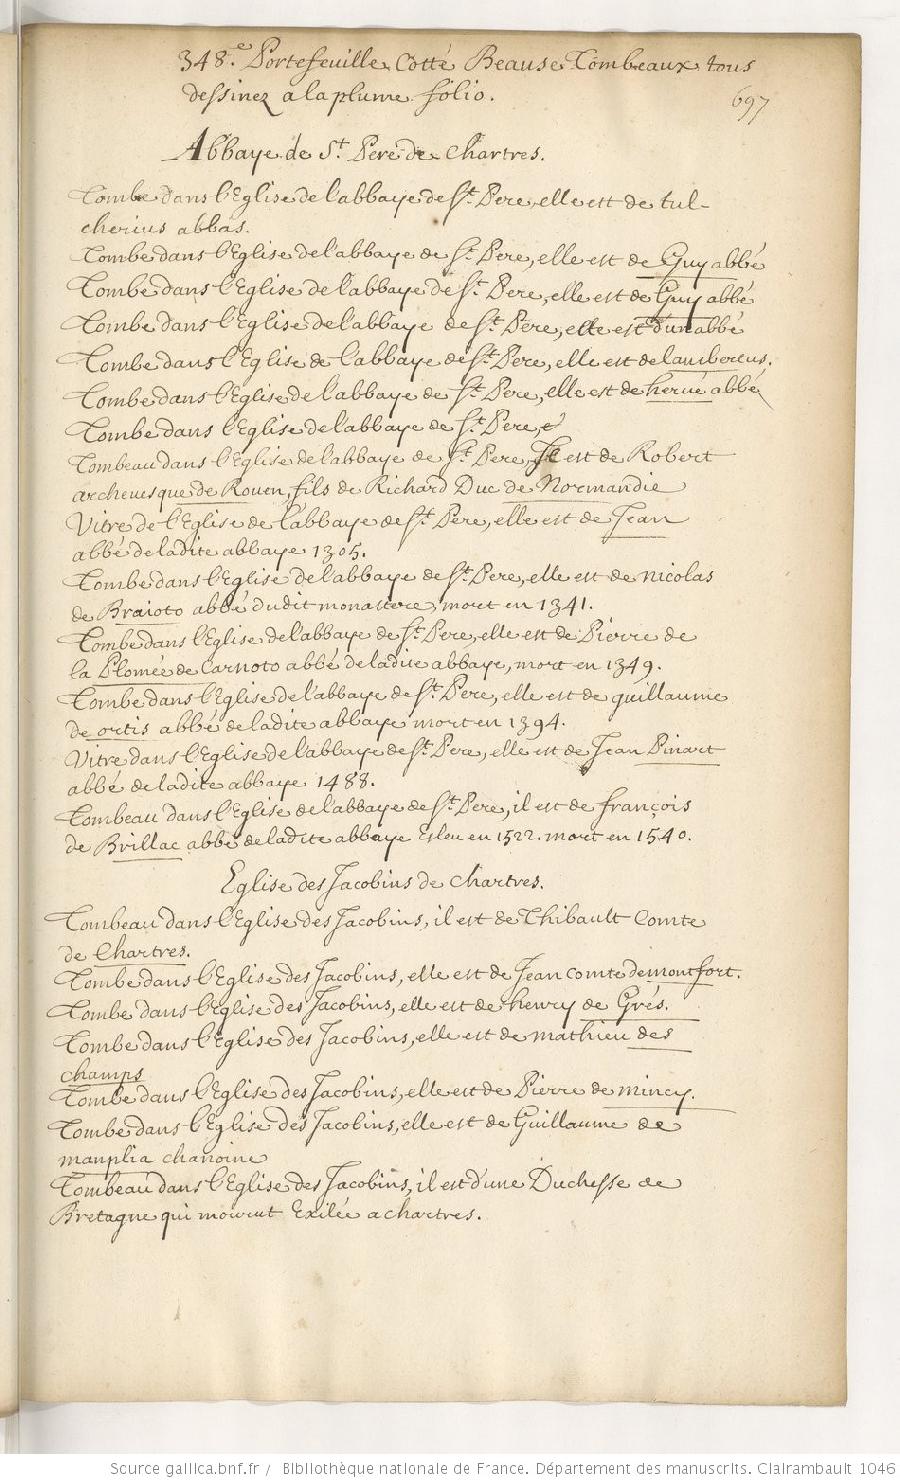 348.e Portefeuille Cotté Beause Tombeaux tous
dessinez a la plume folio.
697
Abbaye de St. Pere de Chartres.
Tombe dans l'Eglise de l'abbaye de St. Pere, elle est de tul-
cherius abbas.
Tombe dans l'Eglise de l'abbaye de St. Pere, elle est de Guy abbé
Tombe dans l'Eglise de l'abbaye de St. Pere, elle est de Guy abbé
Tombe dans l'Eglise de l'abbaye de St. Pere, elle est d'un abbé
Tombe dans l'Eglise de l'abbaye de St. Pere, elle est de lambertus.
Tombe dans l'Eglise de l'abbaye de St. Pere, elle est de herué abbé
Tombe dans l'Eglise de l'abbaye de St. Pere, e
Tombeau dans l'Eglise de l'abbaye de St. Pere, Il est de Robert
archeuesque de Rouen, fils de Richard Duc de Normandie
Vitre de l'Eglise de l'abbaye de St. Pere, elle est de Jean
abbé de la dite abbaye 1305.
Tombe dans l'Eglise de l'abbaye de St. Pere, elle est de nicolas
de Braioto abbé dudit monastere, mort en 1341.
Tombe dans l'Eglise de l'abbaye de St. Pere, elle est de Pierre de
la Plomée de Carnoto abbé de la dite abbaye, mort en 1349.
Tombe dans l'Eglise de l'abbaye de St. Pere, elle est de guillaume
de ortis abbé de la dite abbaye mort en 1394.
Vitre dans l'Eglise de l'abbaye de St. Pere, elle est de Jean Pinart
abbé de la dite abbaye 1488.
Tombeau dans l'Eglise de l'abbaye de St. Pere, il est de françois
de Brillac abbé de la dite abbaye Eslou en 1522. mort en 1540.
Eglise des Jacobins de Chartres.
Tombeau dans l'Eglise des Jacobins, il est de Thibault Comte
de Chartres.
Tombe dans l'Eglise des Jacobins, elle est de Jean comte de montfort.
Tombe dans l'Eglise des Jacobins, elle est de henry de Grés.
Tombe dans l'Eglise des Jacobins, elle est de mathieu des
champs
Tombe dans l'Eglise des Jacobins, elle est de Pierre de mincy.
Tombe dans l'Eglise des Jacobins, elle est de Guillaume de
manplia chanoine
Tombeau dans l'Eglise des Jacobins, il est d'une Duchesse de
Bretagne qui mourut Exilée a chartres.
Source gallica.bnf.fr / Bibliothèque nationale de France. Département des manuscrits. Clairambault 1046